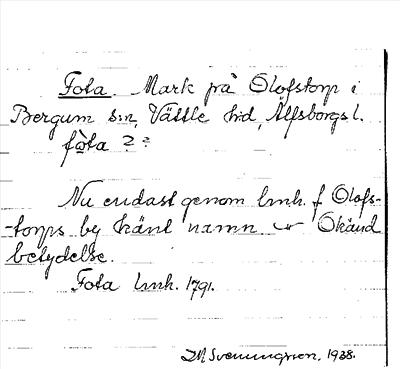 Fota. Mark på Olofstorp i
Bergum s:n, Vättle hd, Älfsborgs l.
fòta ? ?
Nu endast genom lmh. f Olofs-
-torps by känt namn. Okänd
betydelse.
Fota lmh. 1791.
IM Svenungsson, 1938.